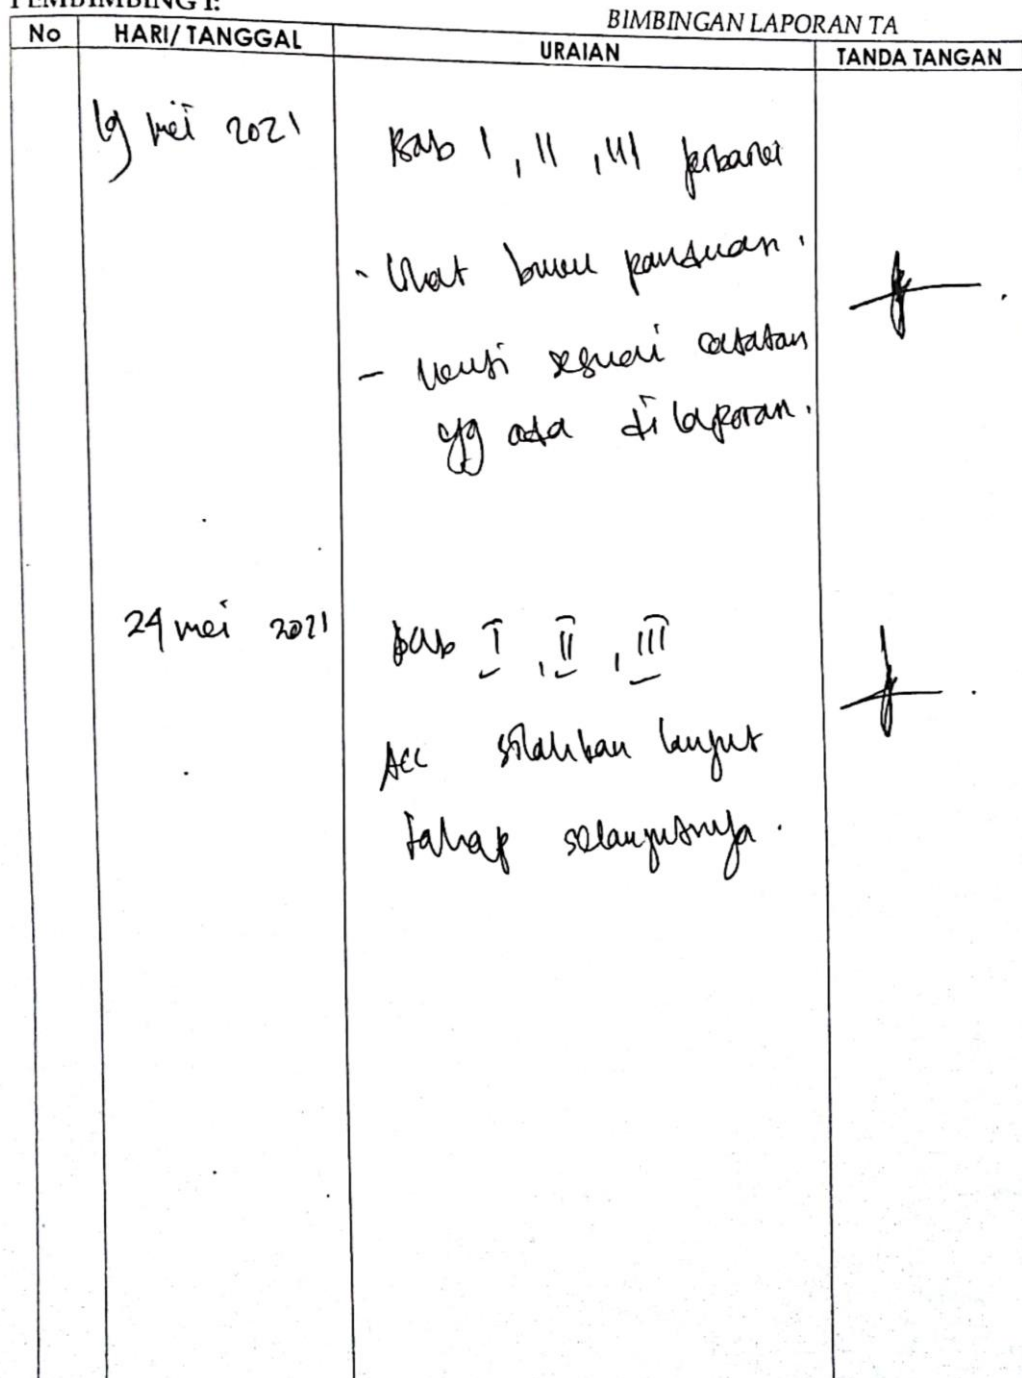 PEMBIMBING I:
BIMBINGAN LAPORAN TA
No HARI/TANGGAL URAIAN TANDA TANGAN
19 mei 2021
Bab I, II, III perbaiki
- lihat buku panduan.
- revisi sesuai catatan
yg ada di laporan.
24 mei 2021
Bab I, II, III
Acc silahkan lanjut
tahap selanjutnya.